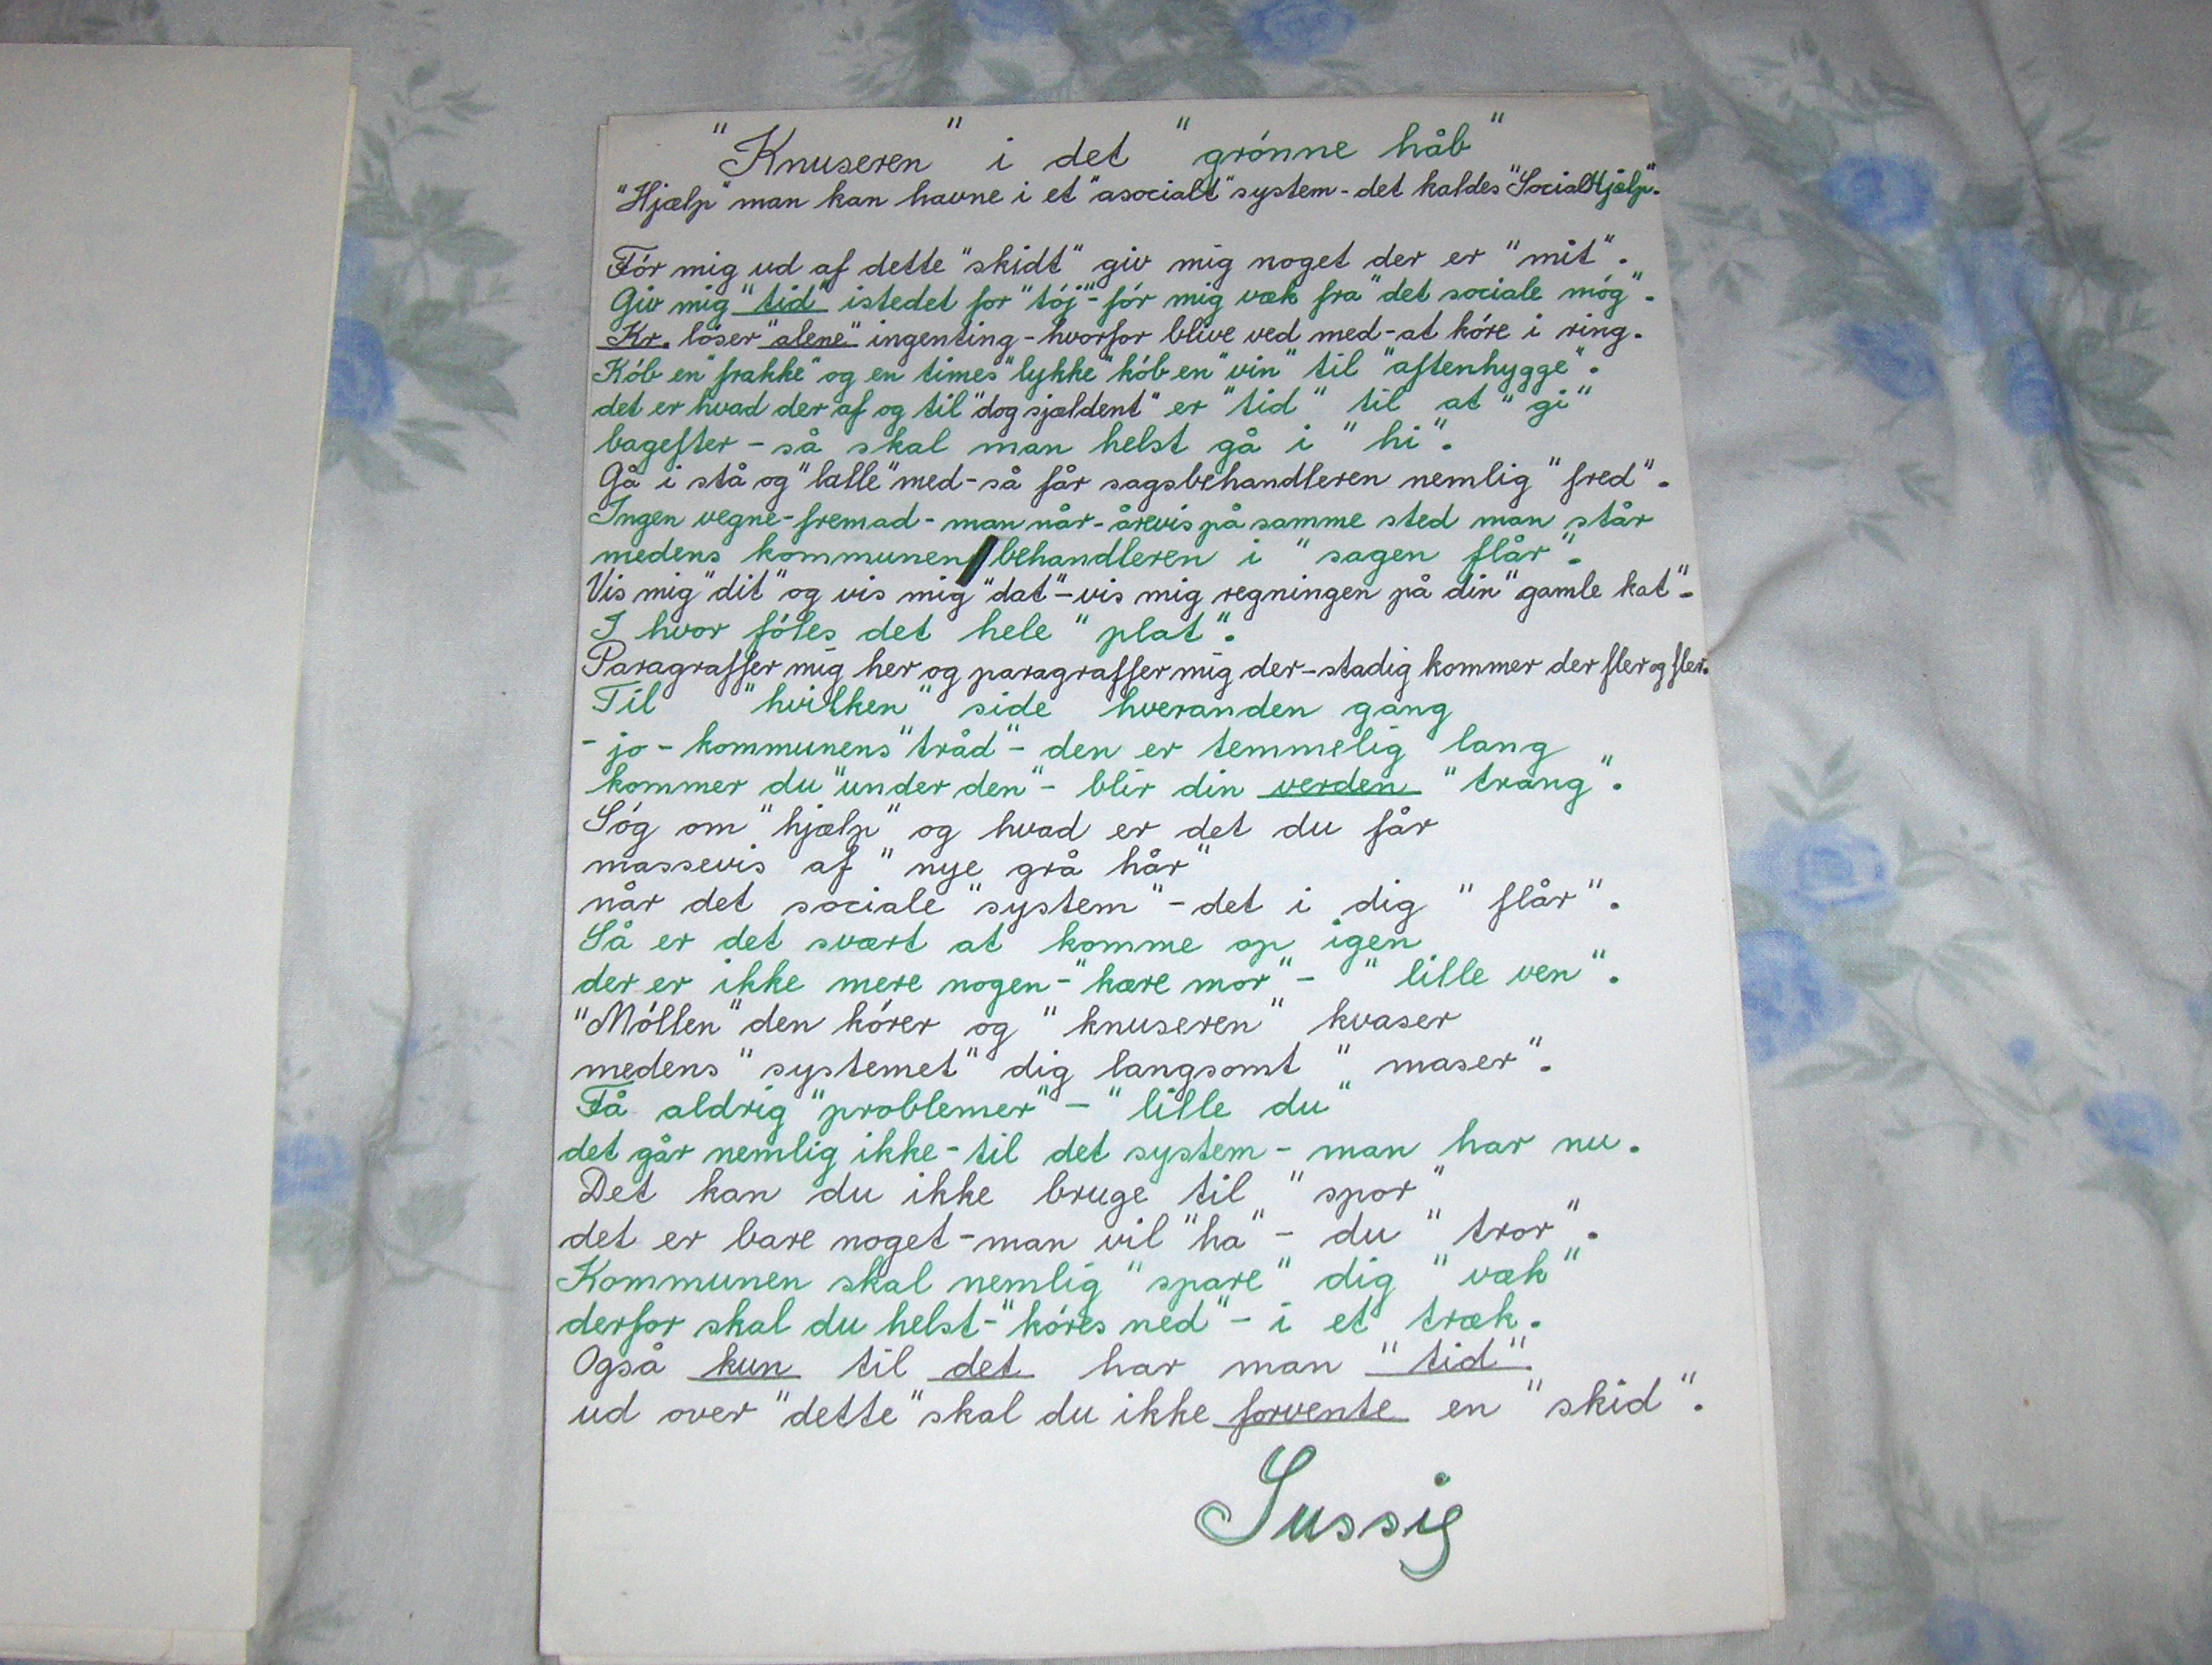 "Knuseren" i det "grónne håb"
"Hjælp" man kan havne i et "asocialt" system - det kaldes "SocialHjælp".
Fór mig ud af dette "skidt" giv mig noget der er "mit".
Giv mig "tid" istedet for "tój" - fór mig væk fra "det sociale móg".
Kr. lóser "alene" ingenting - hvorfor blive ved med - at kóre i ring.
Kób en "frakke" og en times "lykke" kób en "vin" til "aftenhygge".
det er hvad der af og til "dog sjældent" er "tid" til at "gi"
bagefter - så skal man helst gå i "hi".
Gå i stå og "lalle" med - så får sagsbehandleren nemlig "fred".
Ingen vegne - fremad - man når - årevis på samme sted man står
medens kommunen/behandleren i "sagen flår".
Vis mig "dit" og vis mig "dat" - vis mig regningen på din "gamle kat".
I hvor fóles det hele "plat".
Paragraffer mig her og paragraffer mig der - stadig kommer der fler og fler.
Til "hvilken" side hveranden gang
- jo - kommunens "tråd" - den er temmelig lang
kommer du "under den" - blir din verden "trang".
Sóg om "hjælp" og hvad er det du får
massevis af "nye grå hår"
når det sociale "system" - det i dig "flår".
Så er det svært at komme op igen
der er ikke mere nogen - "kære mor" - "lille ven".
"Móllen" den kórer og "knuseren" kvaser
medens "systemet" dig langsomt "maser".
Få aldrig "problemer" - "lille du"
det går nemlig ikke - til det system - man har nu.
Det kan du ikke bruge til "spor"
det er bare noget - man vil "ha" - du "tror".
Kommunen skal nemlig "spare" dig "væk"
derfor skal du helst - "kóres ned" - i et træk.
Også kun til det har man "tid".
ud over "dette" skal du ikke forvente en "skid".
Sussig